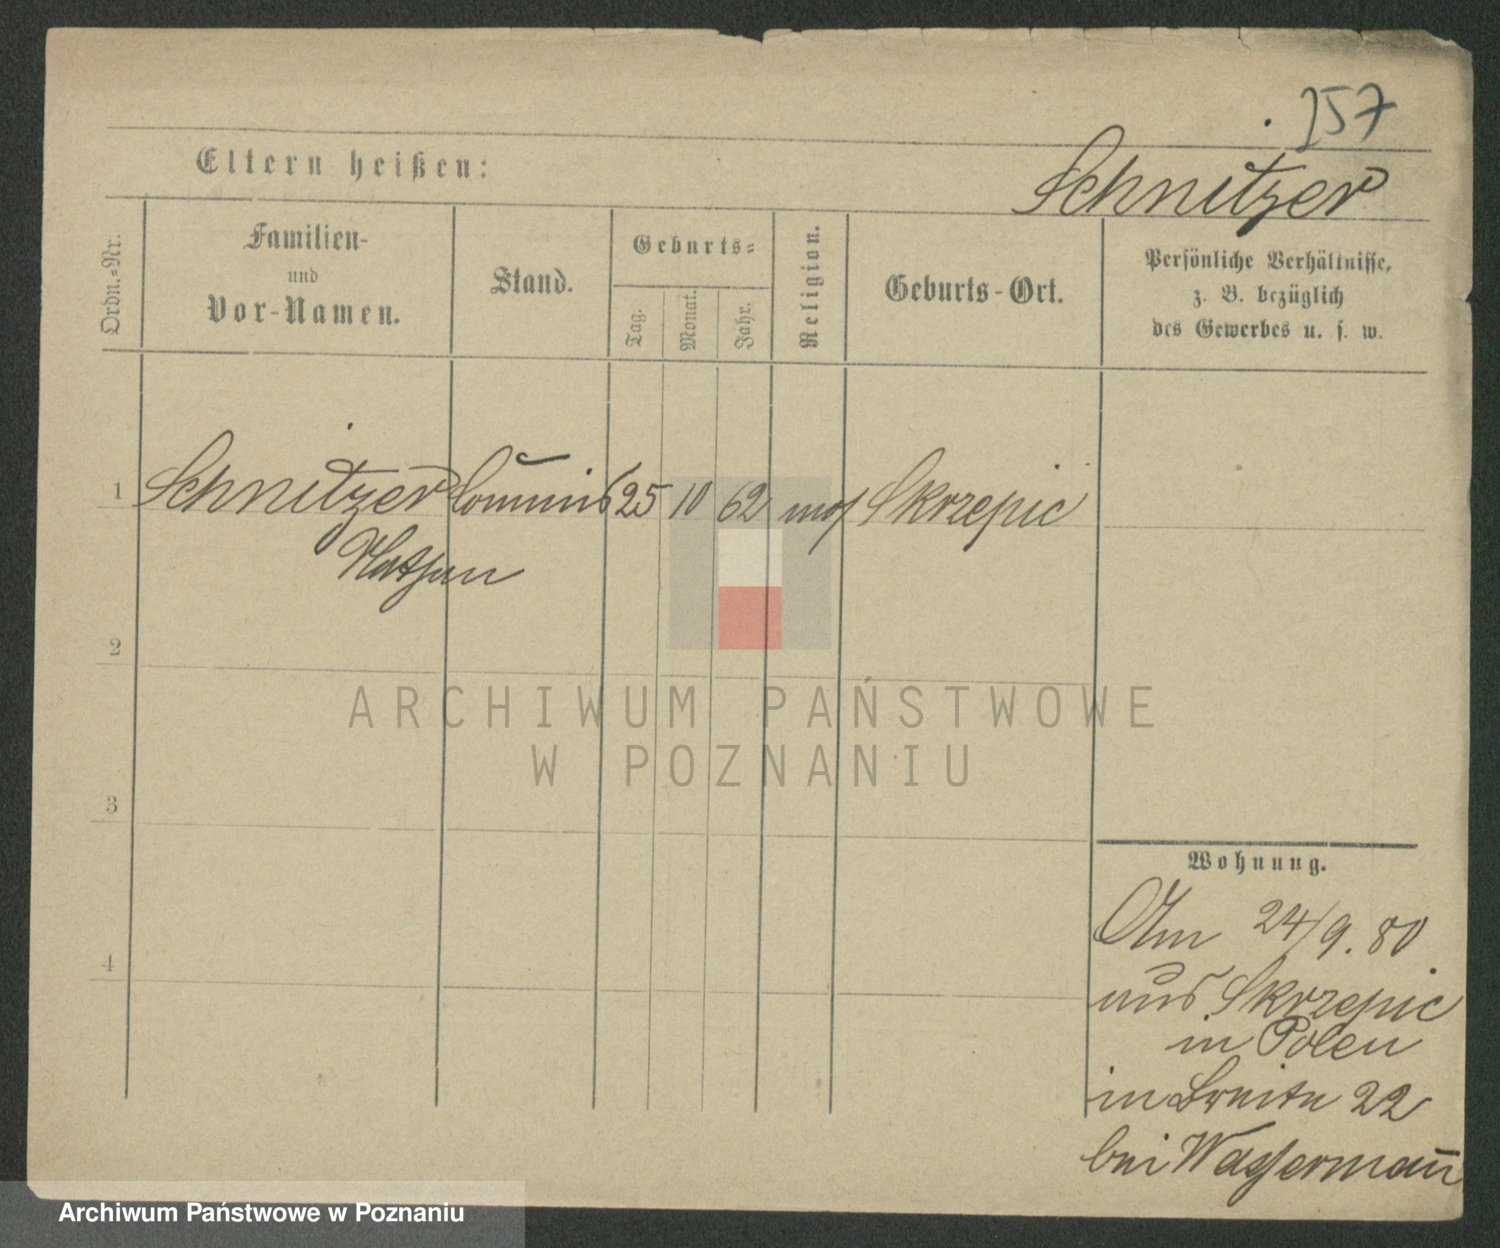 157
Eltern heißen:
Schnitzer
Ordn.-Nr.
Familien-
und
Vor-Namen.
Stand.
Geburts-
Tag.
Monat.
Jahr.
Religion.
Geburts-Ort.
Persönliche Verhältnisse,
z. B. bezüglich
des Gewerbes u. s. w.
1 Schnitzer Commis 25 10 62 mos Skrzepic
Nathan
2
3
4
ARCHIWUM PAŃSTWOWE
W POZNANIU
Wohnung.
Am 24/9. 80
aus Skrzepic
in Polen
in Breite 22
bei Wassermann
Archiwum Państwowe w Poznaniu